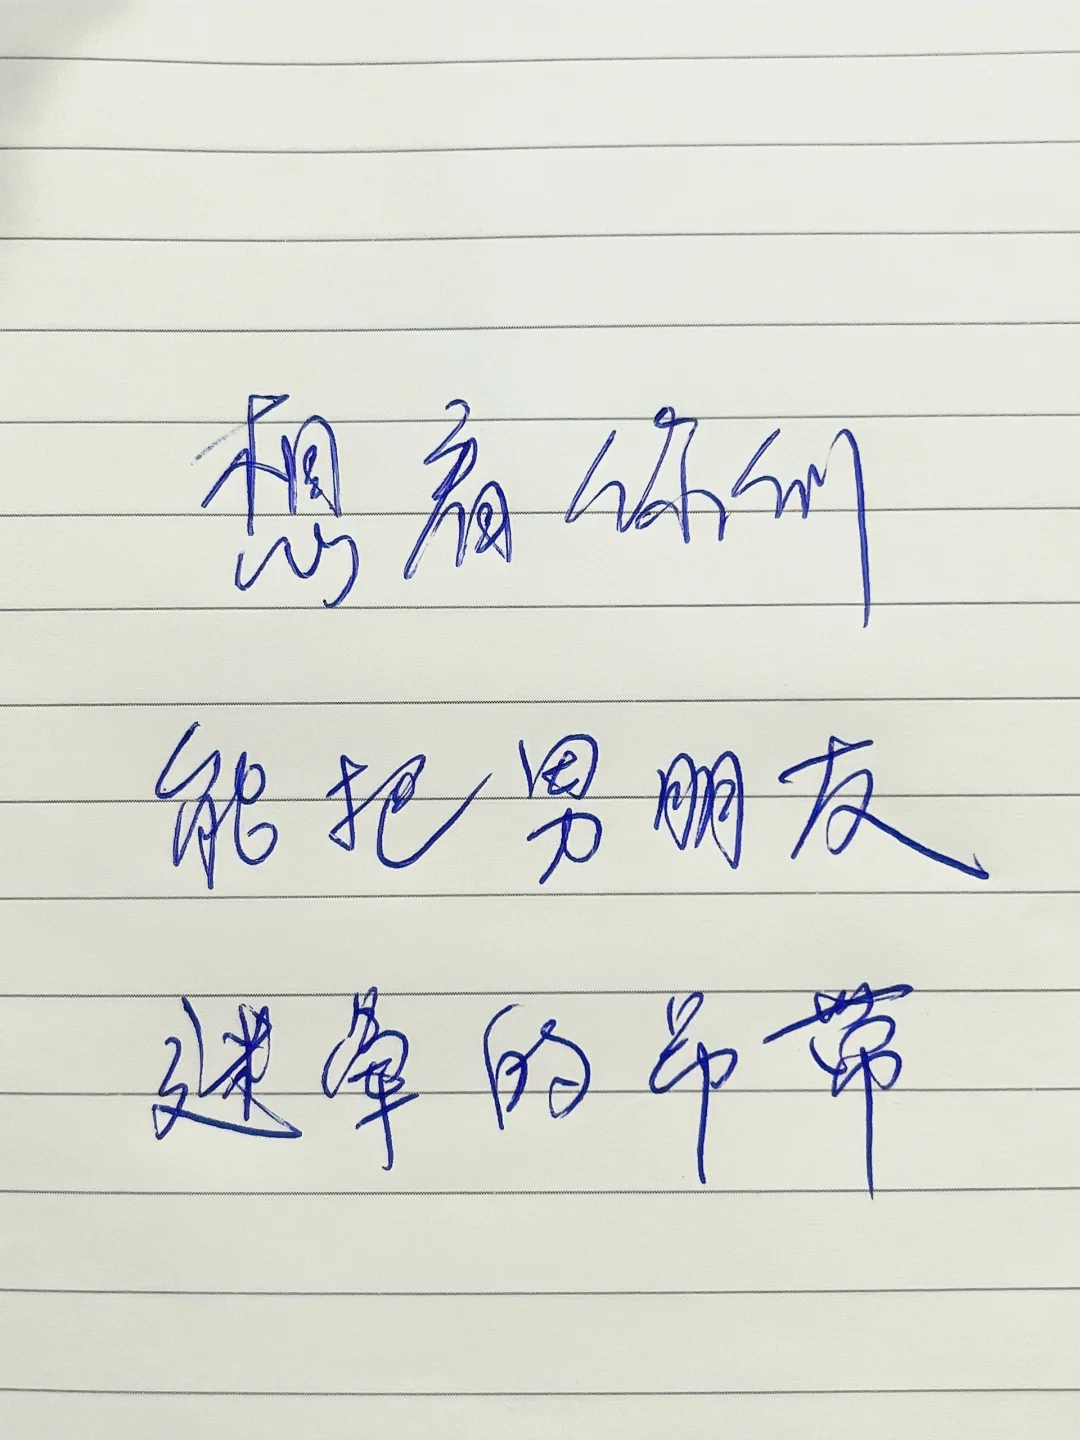 想看你们
能把男朋友
迷晕的吊带